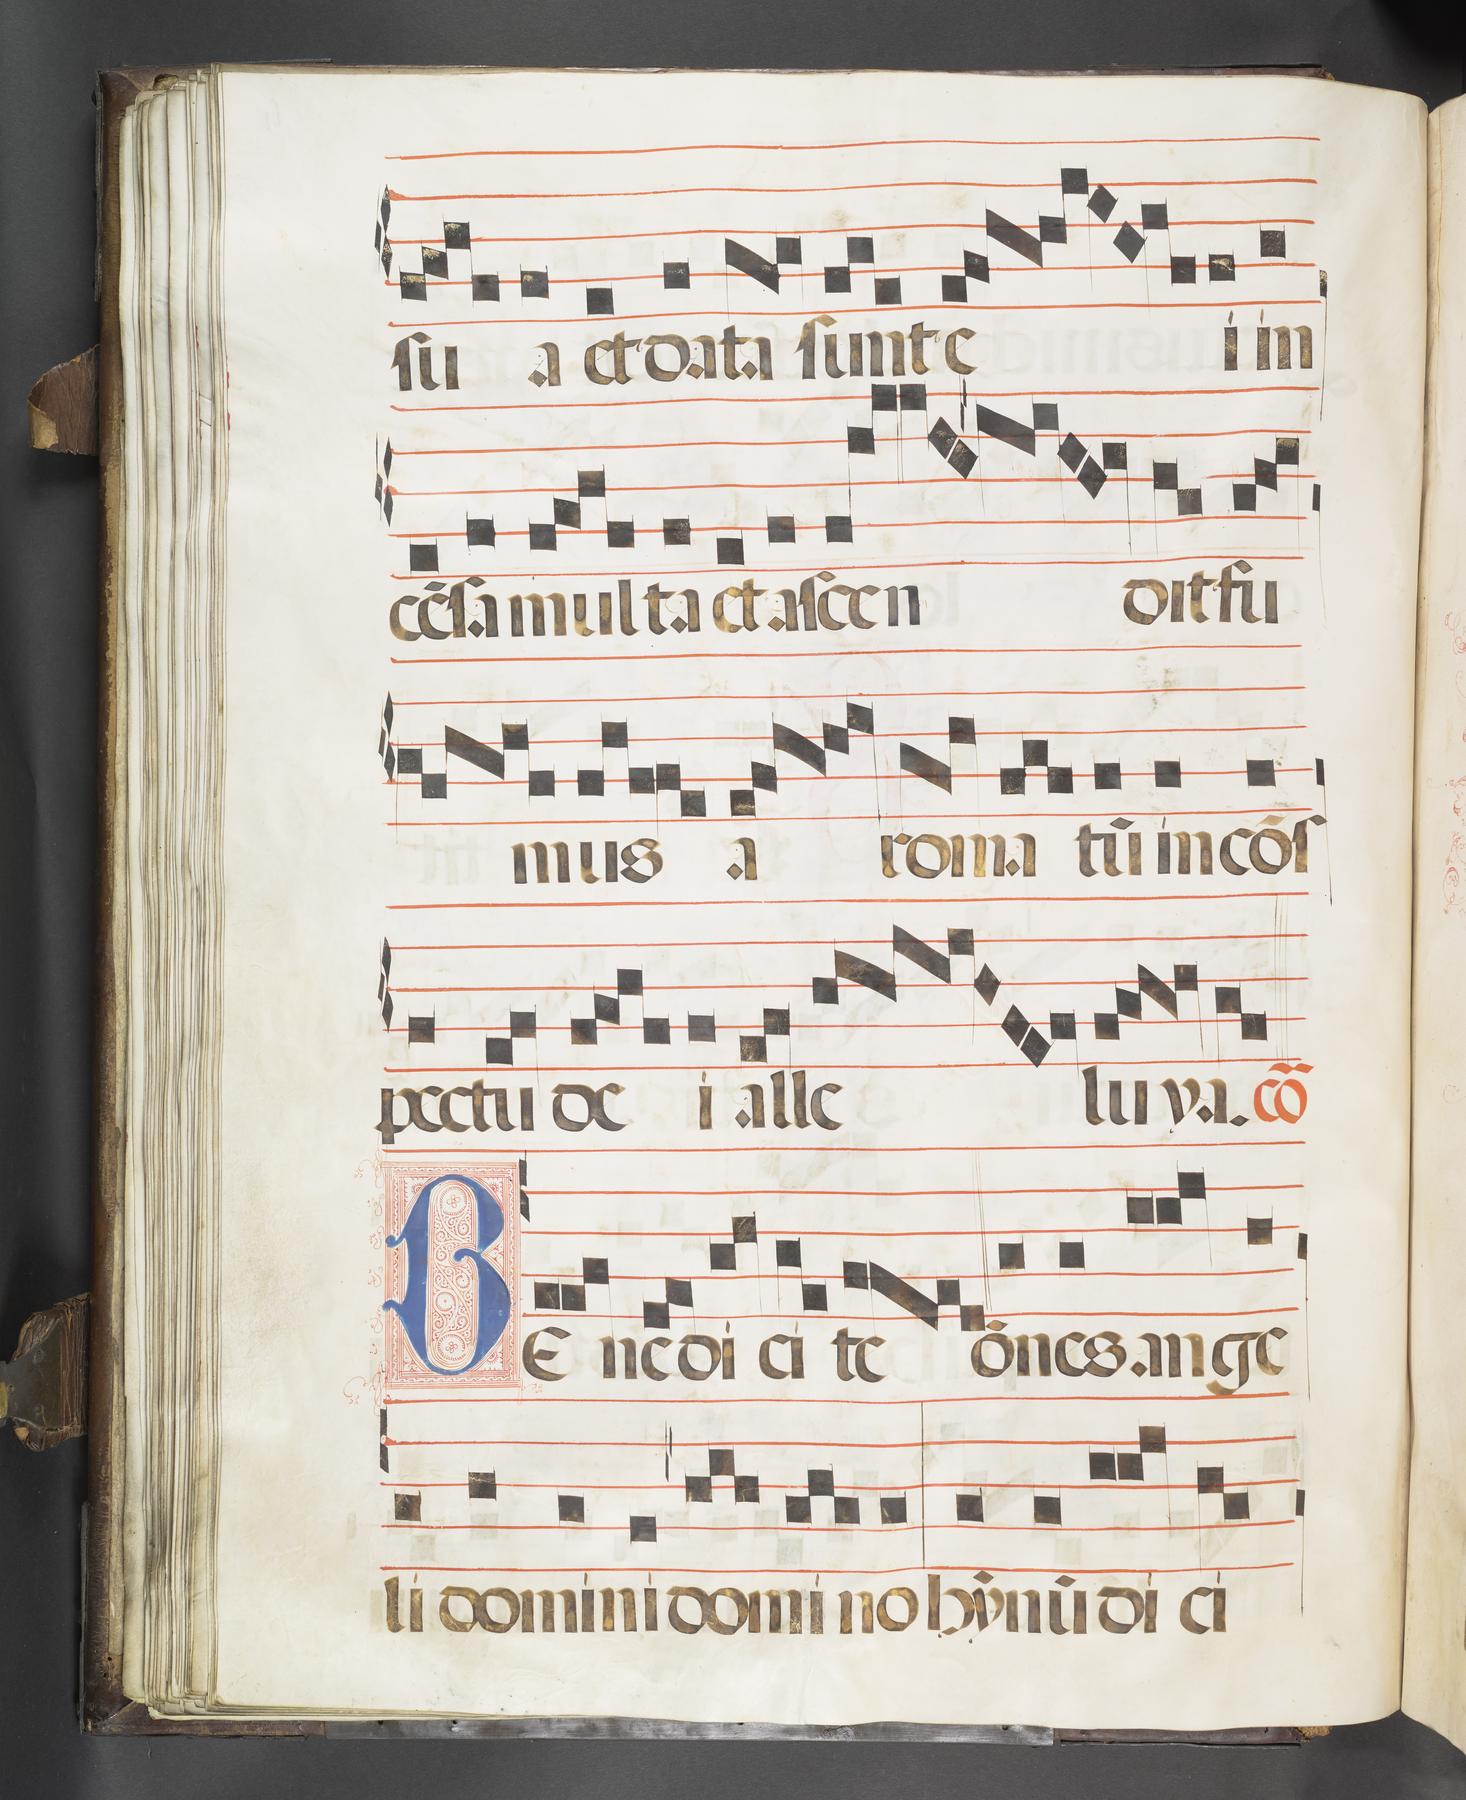 su a et data sunt e i in
cẽsa multa et ascen dit fu
mus a roma tũ in cõs
pectu de i alle lu ya. cõ
BE ne di ci te õnes ange
li domini domi no hỹnũ di ci